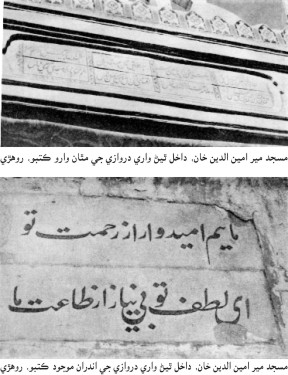 مسجد مير امين الدين خان، داخل ٿيڻ واري دروازي جي مٿان وارو ڪتبو، روهڙي
مايم اميدوار از رحمت تو
ای لطف تو بی نیاز از طاعت ما
مسجد مير امين الدين خان، داخل ٿيڻ واري دروازي جي اندران موجود ڪتبو، روهڙي